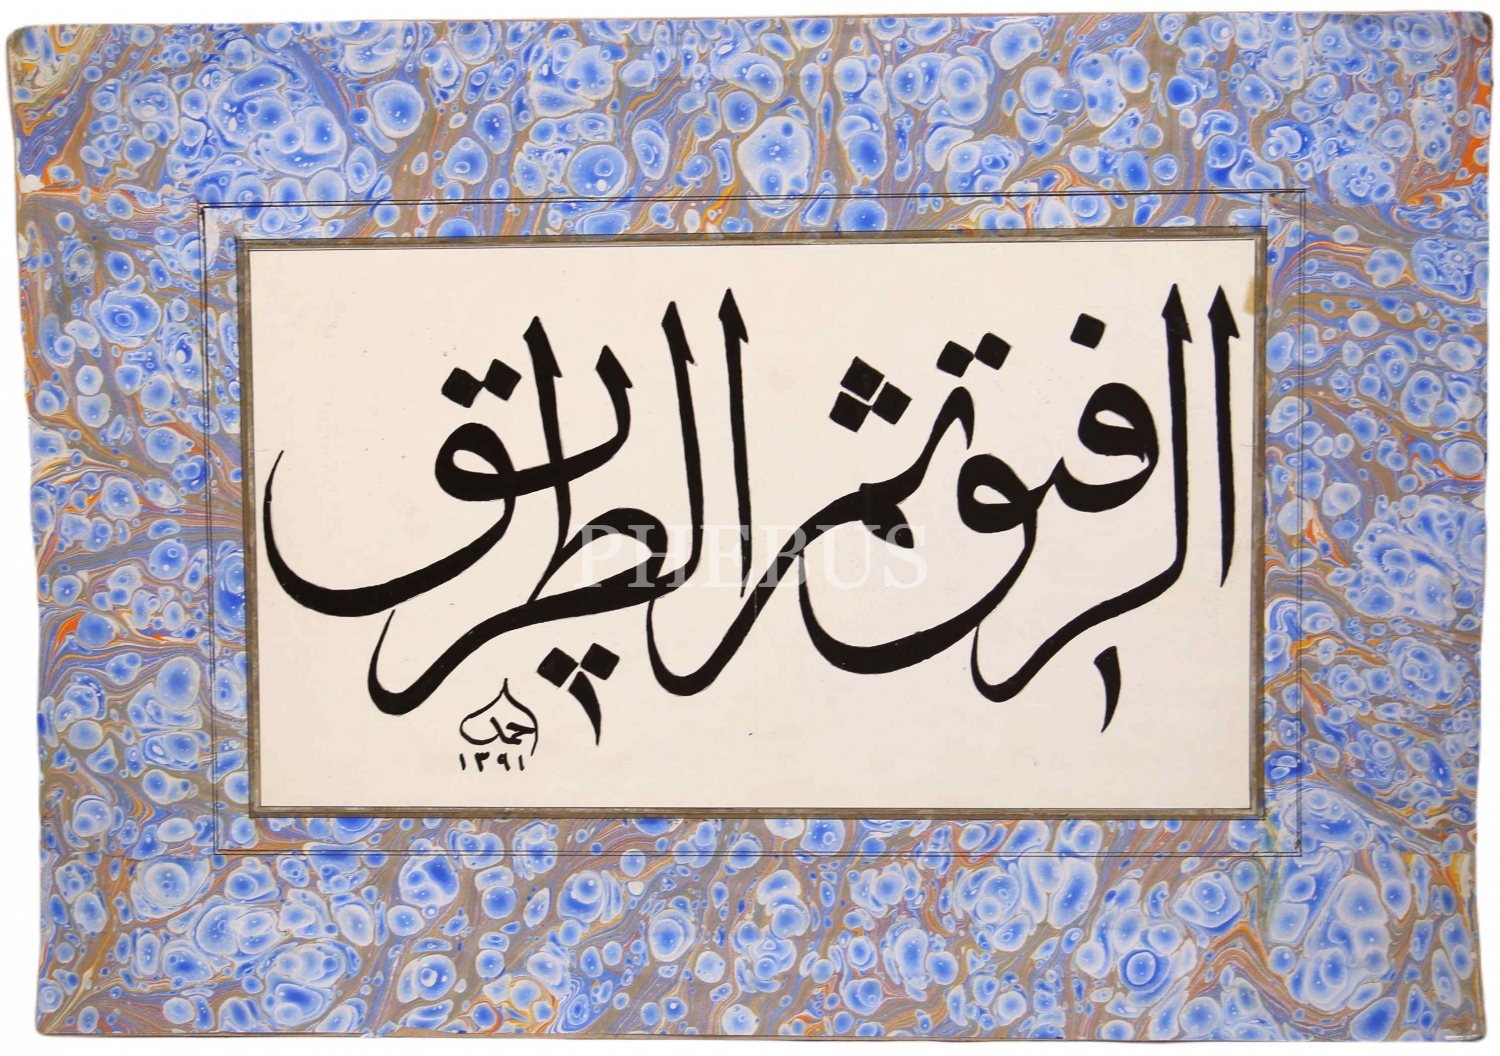 الرفيق ثم الطريق
PHEBUS
احمد
١٣٩١